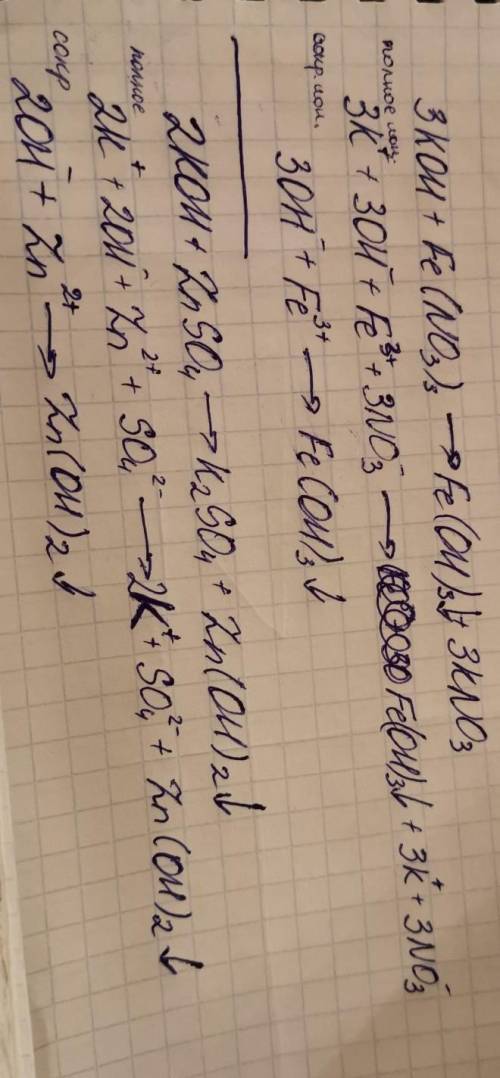 3KOH + Fe(NO₃)₃ → Fe(OH)₃↓ + 3KNO₃
полное ион.
3K⁺ + 3OH⁻ + Fe³⁺ + 3NO₃⁻ → Fe(OH)₃↓ + 3K⁺ + 3NO₃⁻
сокр. ион.
3OH⁻ + Fe³⁺ → Fe(OH)₃↓
2KOH + ZnSO₄ → K₂SO₄ + Zn(OH)₂↓
полное
2K⁺ + 2OH⁻ + Zn²⁺ + SO₄²⁻ → 2K⁺ + SO₄²⁻ + Zn(OH)₂↓
сокр
2OH⁻ + Zn²⁺ → Zn(OH)₂↓